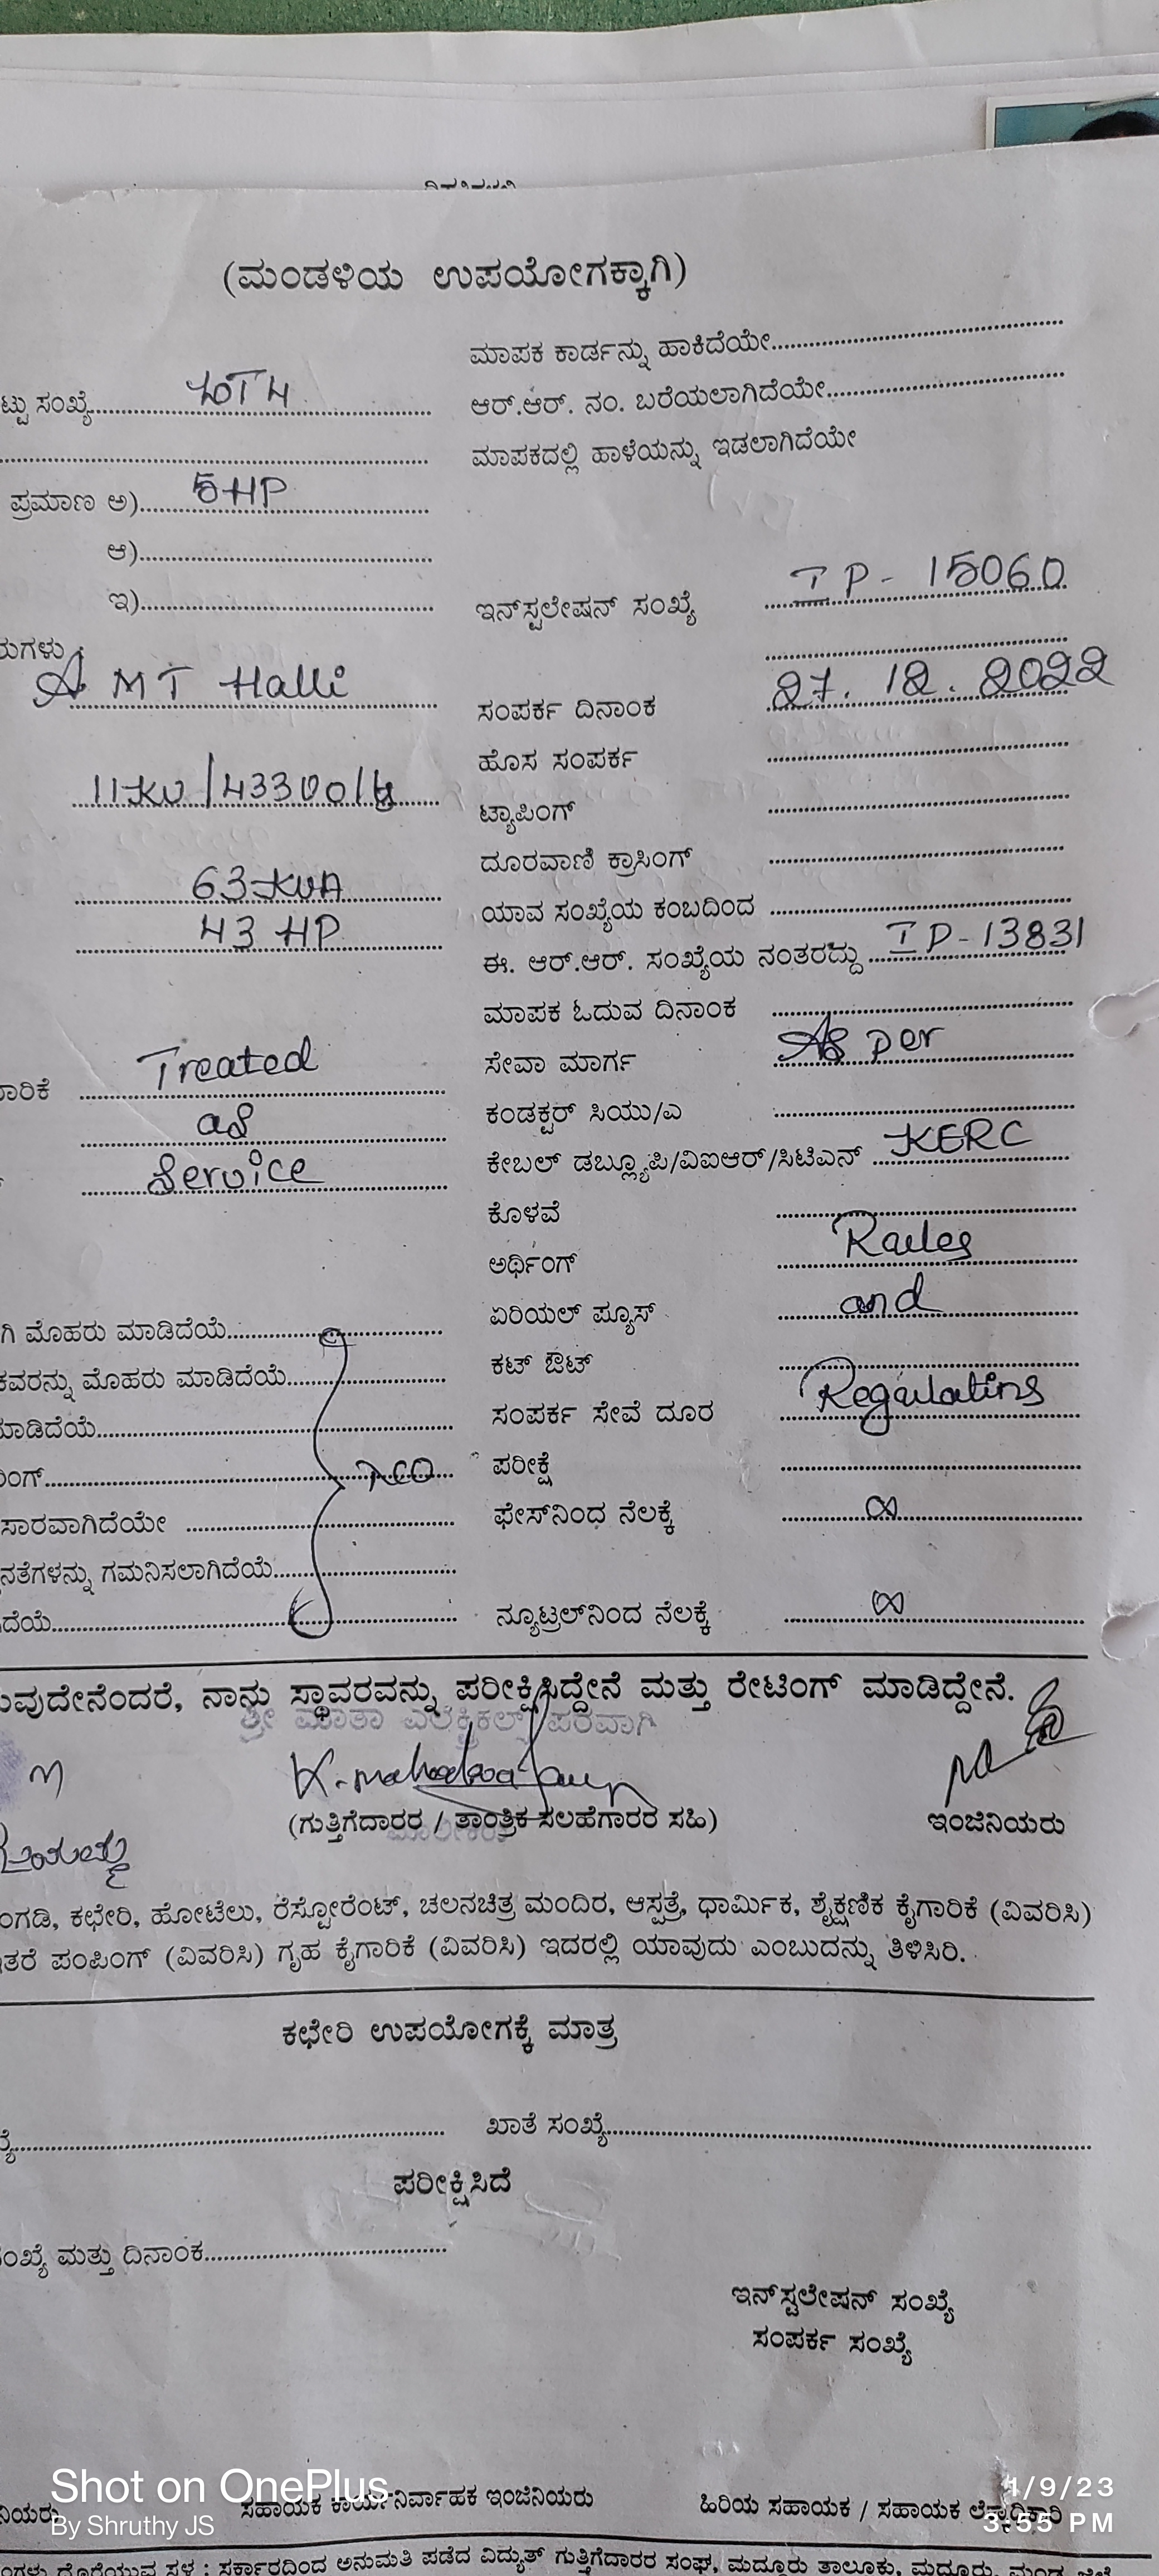 (ಮಂಡಳಿಯ ಉಪಯೋಗಕ್ಕಾಗಿ)
ಮಾಪಕ ಕಾರ್ಡನ್ನು ಹಾಕಿದೆಯೇ
ಟ್ಟು ಸಂಖ್ಯೆ
ಆರ್.ಆರ್. ನಂ. ಬರೆಯಲಾಗಿದೆಯೇ
ಮಾಪಕದಲ್ಲಿ ಹಾಳೆಯನ್ನು ಇಡಲಾಗಿದೆಯೇ
ಪ್ರಮಾಣ ಅ) 5HP
ಆ)
ಇ)
ಇನ್‌ಸ್ಟಲೇಷನ್ ಸಂಖ್ಯೆ IP-15060
ರುಗಳು
A MT Halli
ಸಂಪರ್ಕ ದಿನಾಂಕ 27.12.2022
ಹೊಸ ಸಂಪರ್ಕ
ಟ್ಯಾಪಿಂಗ್
ದೂರವಾಣಿ ಕ್ರಾಸಿಂಗ್
63 KVA
ಯಾವ ಸಂಖ್ಯೆಯ ಕಂಬದಿಂದ
43 HP
ಈ. ಆರ್.ಆರ್. ಸಂಖ್ಯೆಯ ನಂತರದ್ದು IP-13831
ಮಾಪಕ ಓದುವ ದಿನಾಂಕ
Treated
ಸೇವಾ ಮಾರ್ಗ As per
ಾರಿಕೆ
as
ಕಂಡಕ್ಟರ್ ಸಿಯು/ಎ
Service
ಕೇಬಲ್ ಡಬ್ಲ್ಯೂಪಿ/ವಿಐಆರ್/ಸಿಟಿಎನ್ KERC
ಕೊಳವೆ
ಅರ್ಥಿಂಗ್ Rules
ಗಿ ಮೊಹರು ಮಾಡಿದೆಯೆ
ಏರಿಯಲ್ ಪ್ಯೂಸ್ and
ಕವರನ್ನು ಮೊಹರು ಮಾಡಿದೆಯೆ
ಕಟ್ ಔಟ್
ಮಾಡಿದೆಯೆ
ಸಂಪರ್ಕ ಸೇವೆ ದೂರ Regulations
ಿಂಗ್
ಪರೀಕ್ಷೆ
ಸಾರವಾಗಿದೆಯೇ
ಫೇಸ್‌ನಿಂದ ನೆಲಕ್ಕೆ ∞
ನತೆಗಳನ್ನು ಗಮನಿಸಲಾಗಿದೆಯೆ
ದೆಯೆ
ನ್ಯೂಟ್ರಲ್‌ನಿಂದ ನೆಲಕ್ಕೆ ∞
ುವುದೇನೆಂದರೆ, ನಾನು ಸ್ಥಾವರವನ್ನು ಪರೀಕ್ಷಿಸಿದ್ದೇನೆ ಮತ್ತು ರೇಟಿಂಗ್ ಮಾಡಿದ್ದೇನೆ.
ಶ್ರೀ ಮಾತಾ ಎಲೆಕ್ಟ್ರಿಕಲ್ಸ್ ಪರವಾಗಿ
(ಗುತ್ತಿಗೆದಾರರ / ತಾಂತ್ರಿಕ ಸಲಹೆಗಾರರ ಸಹಿ)
ಇಂಜಿನಿಯರು
ಂಗಡಿ, ಕಛೇರಿ, ಹೋಟೆಲು, ರೆಸ್ಟೋರೆಂಟ್, ಚಲನಚಿತ್ರ ಮಂದಿರ, ಆಸ್ಪತ್ರೆ, ಧಾರ್ಮಿಕ, ಶೈಕ್ಷಣಿಕ ಕೈಗಾರಿಕೆ (ವಿವರಿಸಿ)
ತರೆ ಪಂಪಿಂಗ್ (ವಿವರಿಸಿ) ಗೃಹ ಕೈಗಾರಿಕೆ (ವಿವರಿಸಿ) ಇದರಲ್ಲಿ ಯಾವುದು ಎಂಬುದನ್ನು ತಿಳಿಸಿರಿ.
ಕಛೇರಿ ಉಪಯೋಗಕ್ಕೆ ಮಾತ್ರ
ಖಾತೆ ಸಂಖ್ಯೆ
ಪರೀಕ್ಷಿಸಿದೆ
ಂಖ್ಯೆ ಮತ್ತು ದಿನಾಂಕ
ಇನ್‌ಸ್ಟಲೇಷನ್ ಸಂಖ್ಯೆ
ಸಂಪರ್ಕ ಸಂಖ್ಯೆ
Shot on OnePlus
1/9/23
ನಿಯರು ಸಹಾಯಕ ಕಾರ್ಯನಿರ್ವಾಹಕ ಇಂಜಿನಿಯರು ಹಿರಿಯ ಸಹಾಯಕ / ಸಹಾಯಕ ಲೆಕ್ಕಾಧಿಕಾರಿ
By Shruthy JS
3:55 PM
ಸರ್ಕಾರದಿಂದ ಅನುಮತಿ ಪಡೆದ ವಿದ್ಯುತ್ ಗುತ್ತಿಗೆದಾರರ ಸಂಘ, ಮದ್ದೂರು ತಾಲೂಕು, ಮದ್ದೂರು, ಮಂಡ್ಯ ಜಿಲ್ಲೆ